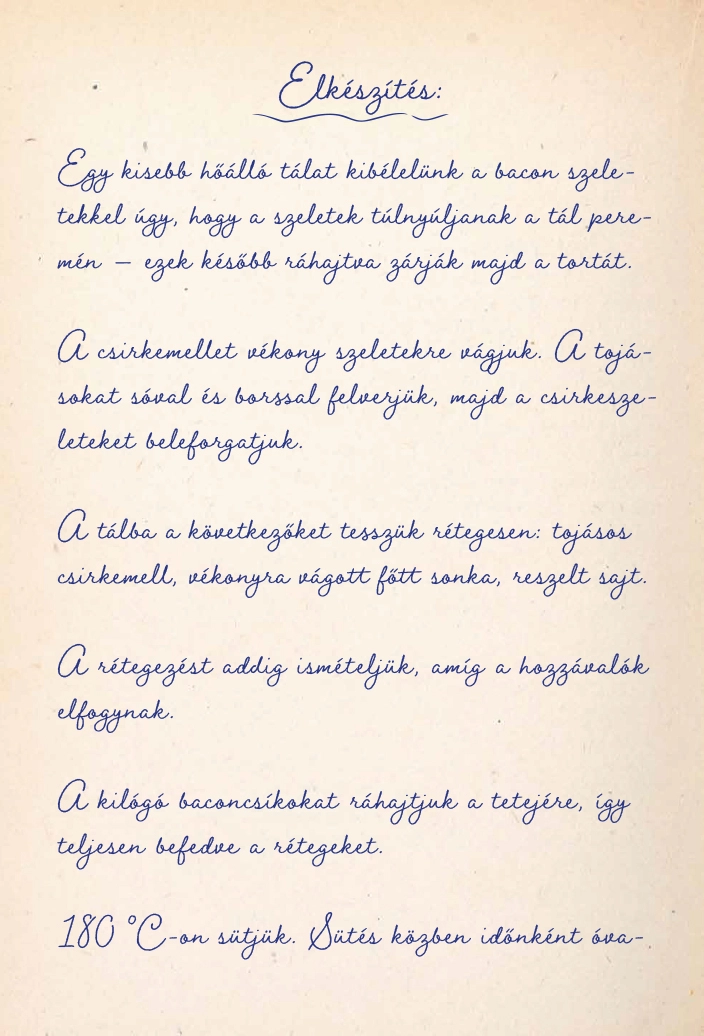 Elkészítés:
Egy kisebb hőálló tálat kibélelünk a bacon szele-
tekkel úgy, hogy a szeletek túlnyúljanak a tál pere-
mén – ezek később ráhajtva zárják majd a tortát.
A csirkemellet vékony szeletekre vágjuk. A tojá-
sokat sóval és borssal felverjük, majd a csirkesze-
leteket beleforgatjuk.
A tálba a következőket tesszük rétegesen: tojásos
csirkemell, vékonyra vágott főtt sonka, reszelt sajt.
A rétegezést addig ismételjük, amíg a hozzávalók
elfogynak.
A kilógó baconcsíkokat ráhajtjuk a tetejére, így
teljesen befedve a rétegeket.
180 °C-on sütjük. Sütés közben időnként óva-